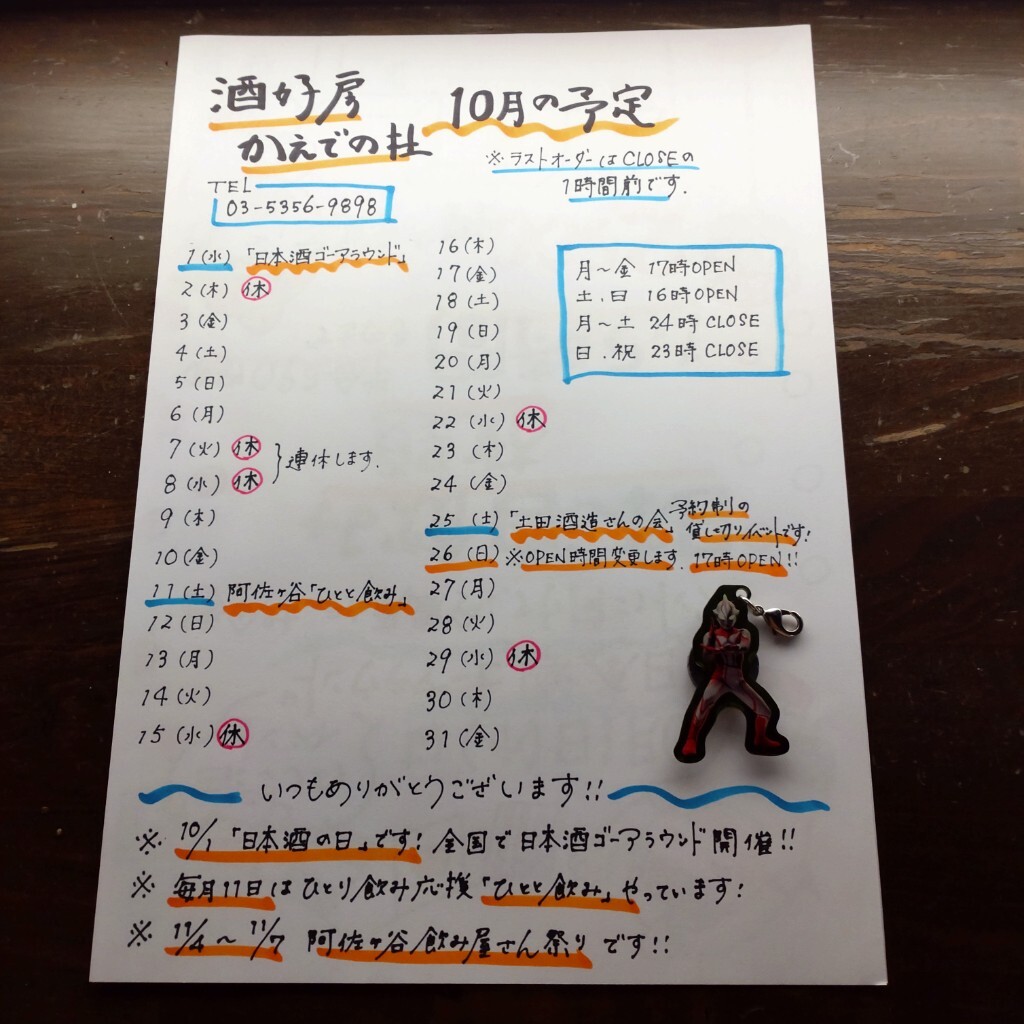 酒好房
かえでの杜
10月の予定
※ラストオーダーはCLOSEの
1時間前です.
TEL
03-5356-9898
1(水)「日本酒ゴーアラウンド」
2(木) 休
3(金)
4(土)
5(日)
6(月)
7(火) 休
8(水) 休
}連休します.
9(木)
10(金)
11(土) 阿佐ヶ谷「ひとと飲み」
12(日)
13(月)
14(火)
15(水) 休
16(木)
17(金)
18(土)
19(日)
20(月)
21(火)
22(水) 休
23(木)
24(金)
25(土)「土田酒造さんの会」予約制の
貸し切りイベントです!
26(日) ※OPEN時間変更します. 17時OPEN!!
27(月)
28(火)
29(水) 休
30(木)
31(金)
月〜金 17時OPEN
土.日 16時OPEN
月〜土 24時CLOSE
日.祝 23時CLOSE
いつもありがとうございます!!
※ 10/1「日本酒の日」です! 全国で日本酒ゴーアラウンド開催!!
※ 毎月11日はひとり飲み応援「ひとと飲み」やっています!
※ 11/4〜11/7 阿佐ヶ谷飲み屋さん祭りです!!